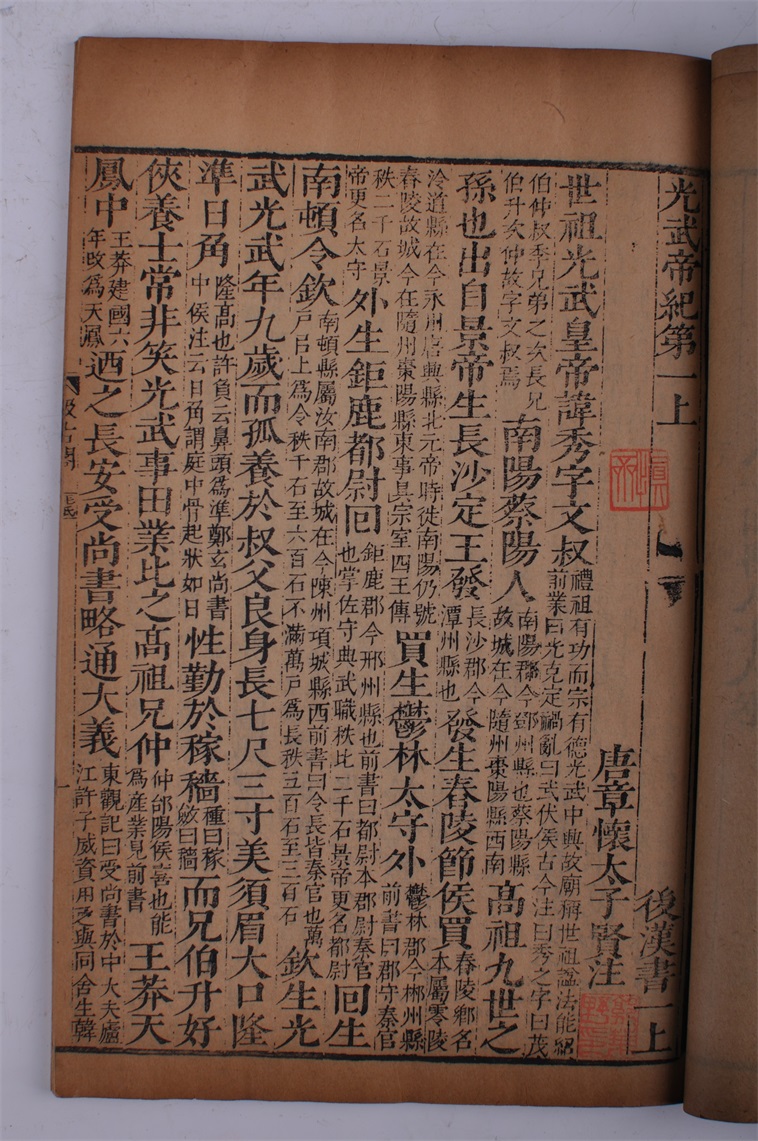 光武帝紀第一上 後漢書一上
唐章懷太子賢注
世祖光武皇帝諱秀字文叔禮祖有功而宗有德光武中興故廟稱世祖諡法能紹前業曰光克定禍亂曰武伏侯古今注曰秀之字曰茂
伯仲叔季兄弟之次長兄伯升次仲故字文叔焉南陽蔡陽人南陽郡今鄧州縣也蔡陽縣故城在今隨州棗陽縣西南高祖九世之
孫也出自景帝生長沙定王發長沙郡今潭州縣也發生舂陵節侯買舂陵鄉名本屬零陵
泠道縣在今永州唐興縣北元帝時徙南陽仍號舂陵故城今在隨州棗陽縣東事具宗室四王傳買生鬱林太守外鬱林郡今郴州縣前書曰郡守秦官
秩二千石景帝更名太守外生鉅鹿都尉回鉅鹿郡今邢州縣也前書曰都尉本郡尉秦官也掌佐守典武職秩比二千石景帝更名都尉回生
南頓令欽南頓縣屬汝南郡故城在今陳州項城縣西前書曰令長皆秦官也萬戶已上爲令秩千石至六百石不滿萬戶爲長秩五百石至三百石欽生光
武光武年九歲而孤養於叔父良身長七尺三寸美須眉大口隆
準日角隆高也許負云鼻頭爲準鄭玄尚書中侯注云日角謂庭中骨起狀如日性勤於稼穡種曰稼斂曰穡而兄伯升好
俠養士常非笑光武事田業比之高祖兄仲仲郃陽侯喜也能爲產業見前書王莽天
鳳中王莽建國六年改爲天鳳迺之長安受尚書略通大義東觀記曰受尚書於中大夫廬江許子威資用乏與同舍生韓
汲古閣
一